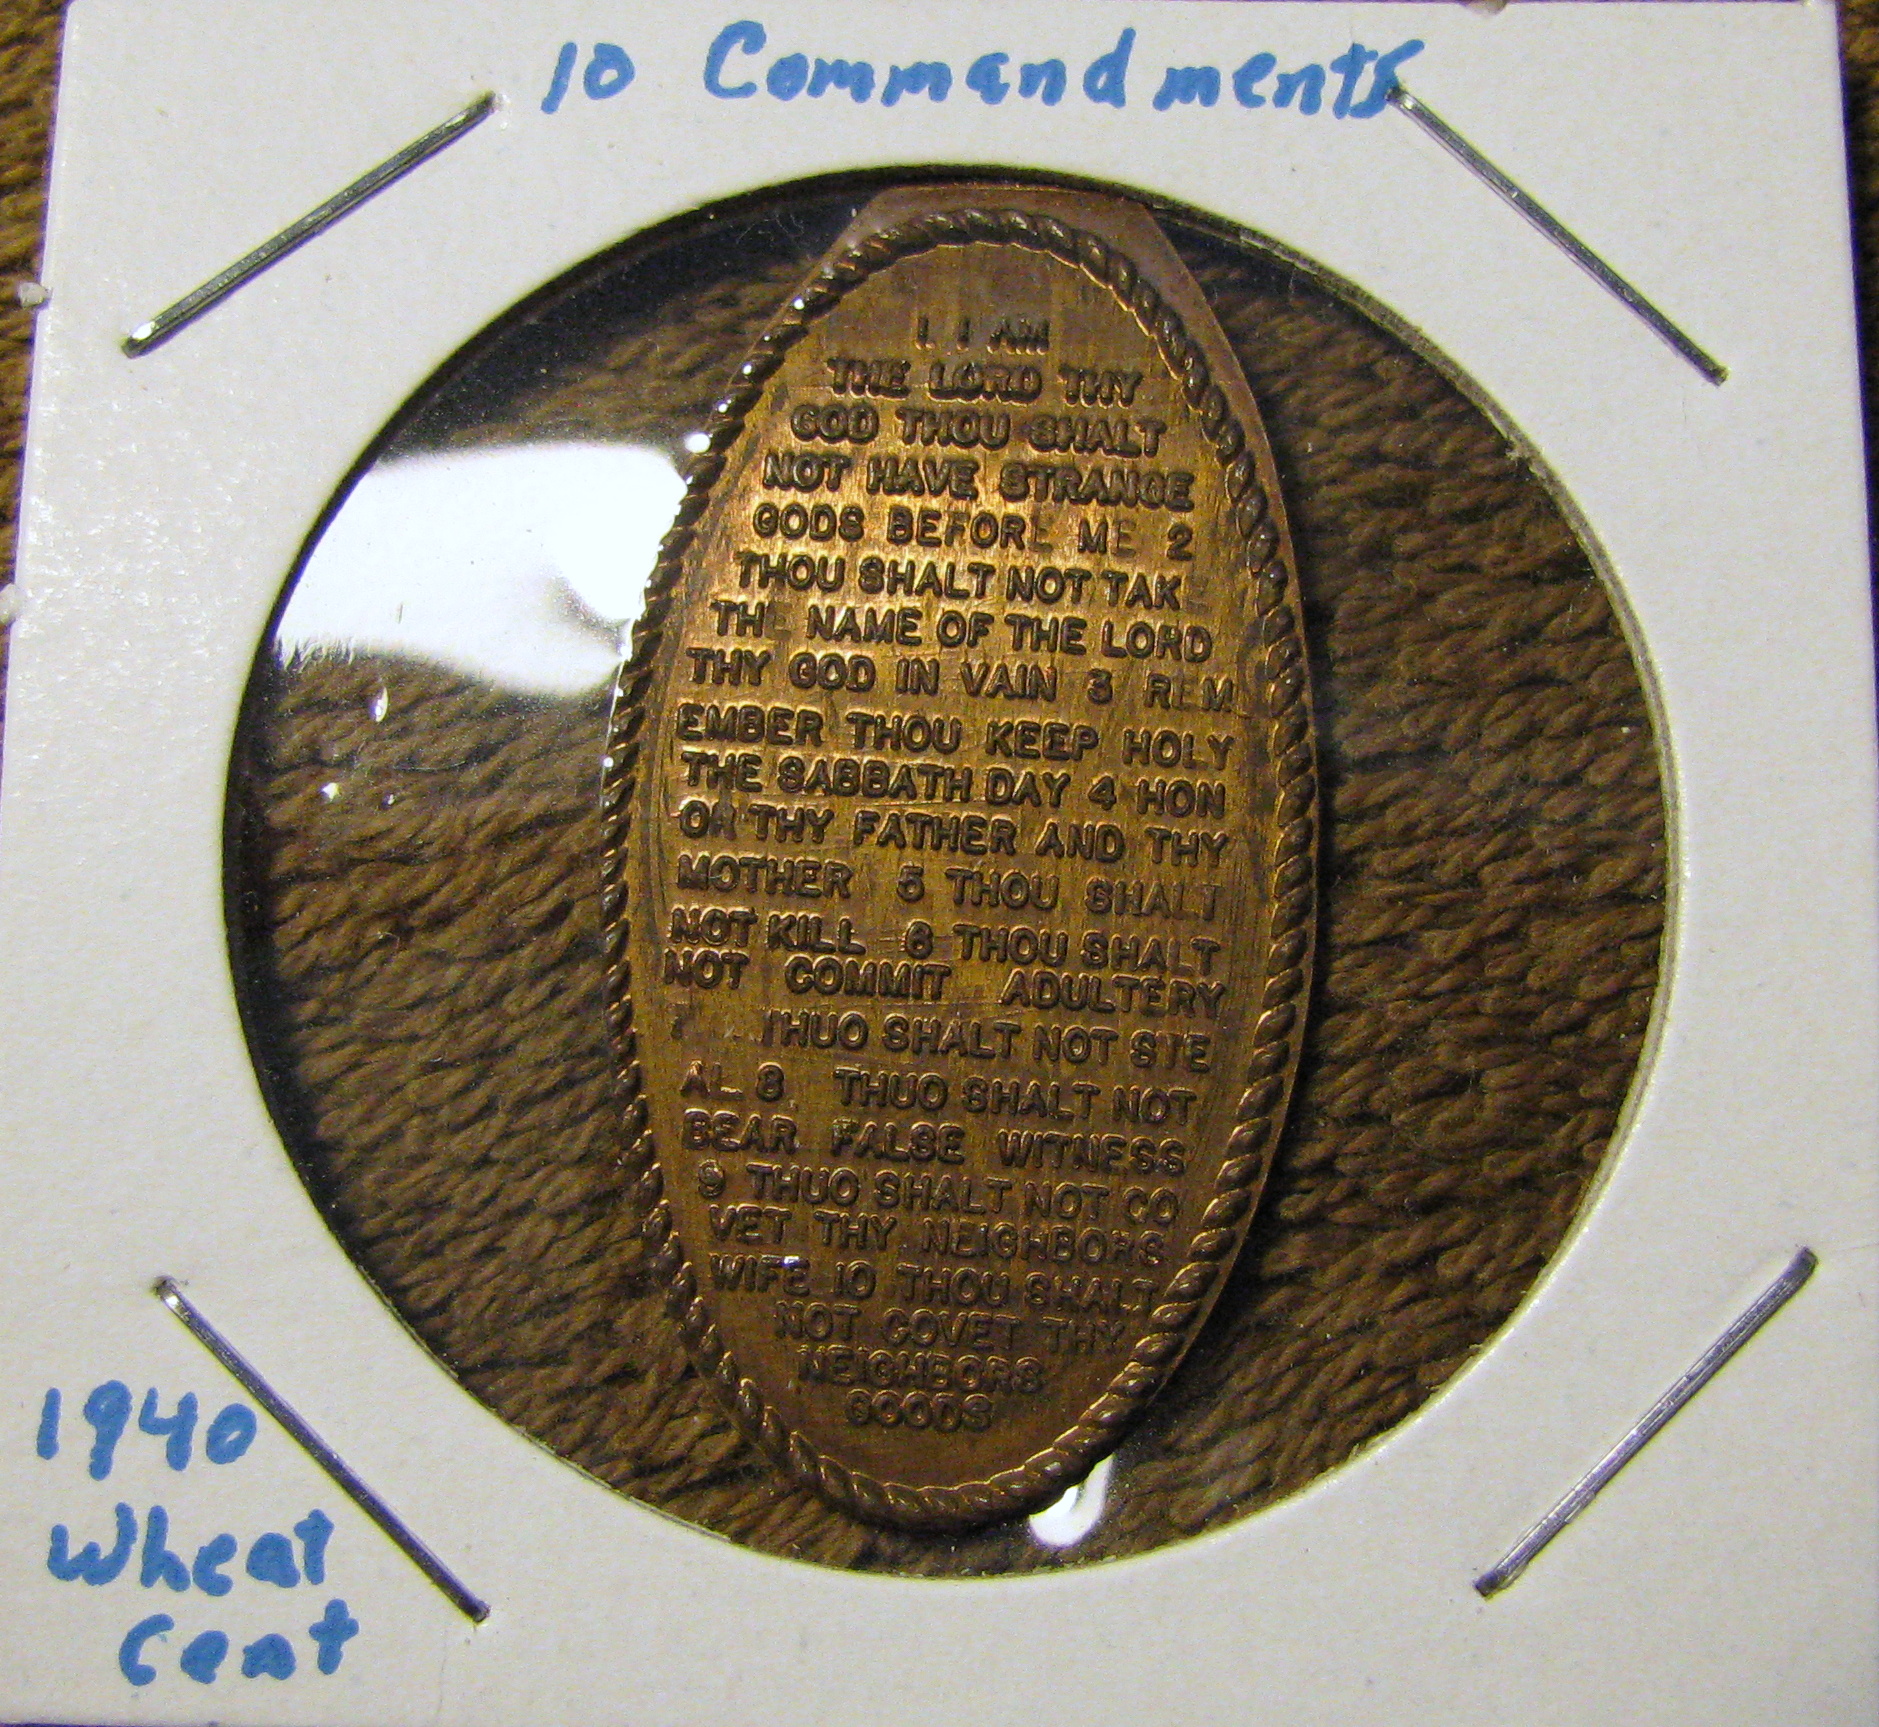 10 Commandments
1 I AM
THE LORD THY
GOD THOU SHALT
NOT HAVE STRANGE
GODS BEFORE ME 2
THOU SHALT NOT TAK
THE NAME OF THE LORD
THY GOD IN VAIN 3 REM
EMBER THOU KEEP HOLY
THE SABBATH DAY 4 HON
OR THY FATHER AND THY
MOTHER 5 THOU SHALT
NOT KILL 6 THOU SHALT
NOT COMMIT ADULTERY
7 THUO SHALT NOT STE
AL 8 THUO SHALT NOT
BEAR FALSE WITNESS
9 THUO SHALT NOT CO
VET THY NEIGHBORS
WIFE 10 THOU SHALT
NOT COVET THY
NEIGHBORS
GOODS
1940
Wheat
Cent